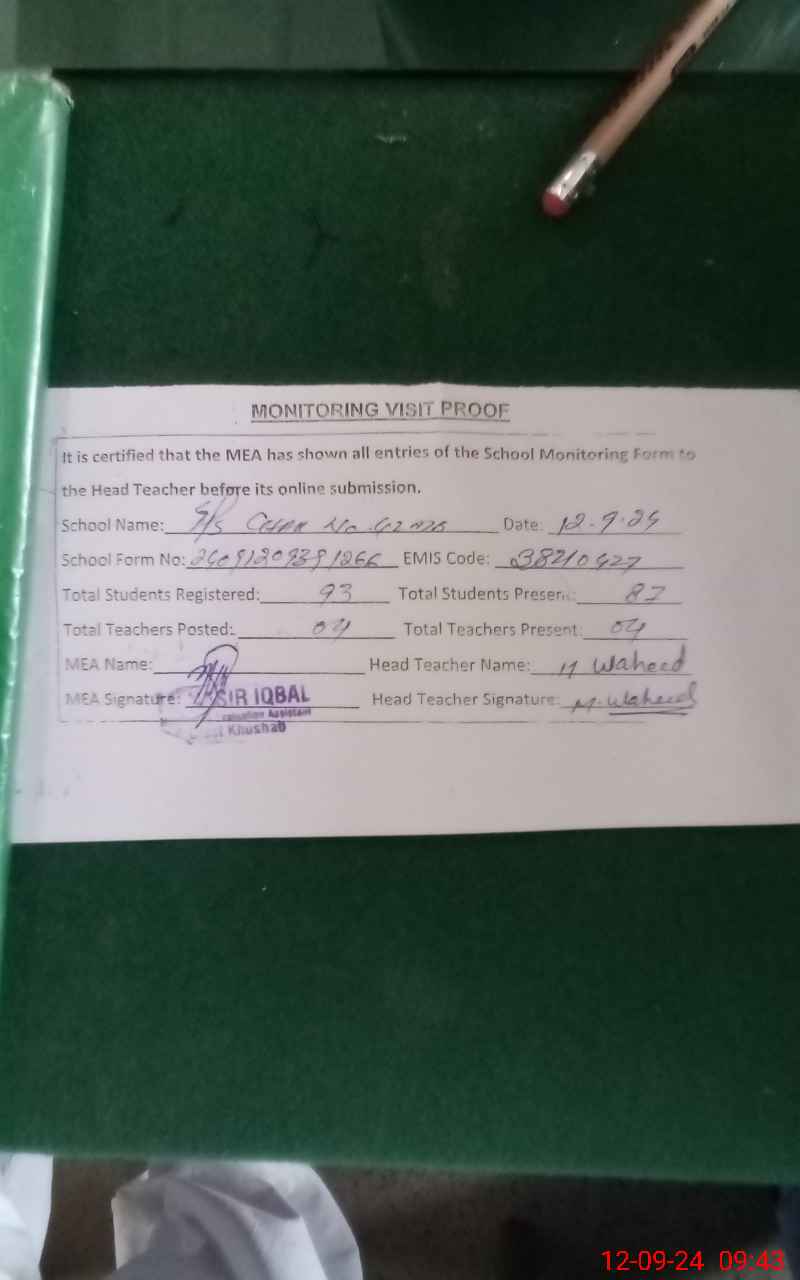 MONITORING VISIT PROOF
It is certified that the MEA has shown all entries of the School Monitoring Form to
the Head Teacher before its online submission.
School Name: Date: 12-9-24
School Form No: EMIS Code:
Total Students Registered: 93 Total Students Present:
Total Teachers Posted: 04 Total Teachers Present: 04
MEA Name: Head Teacher Name: M Waheed
MEA Signature: SIR IQBAL Head Teacher Signature: M. Waheed
Assistant
Khushab
12-09-24 09:43